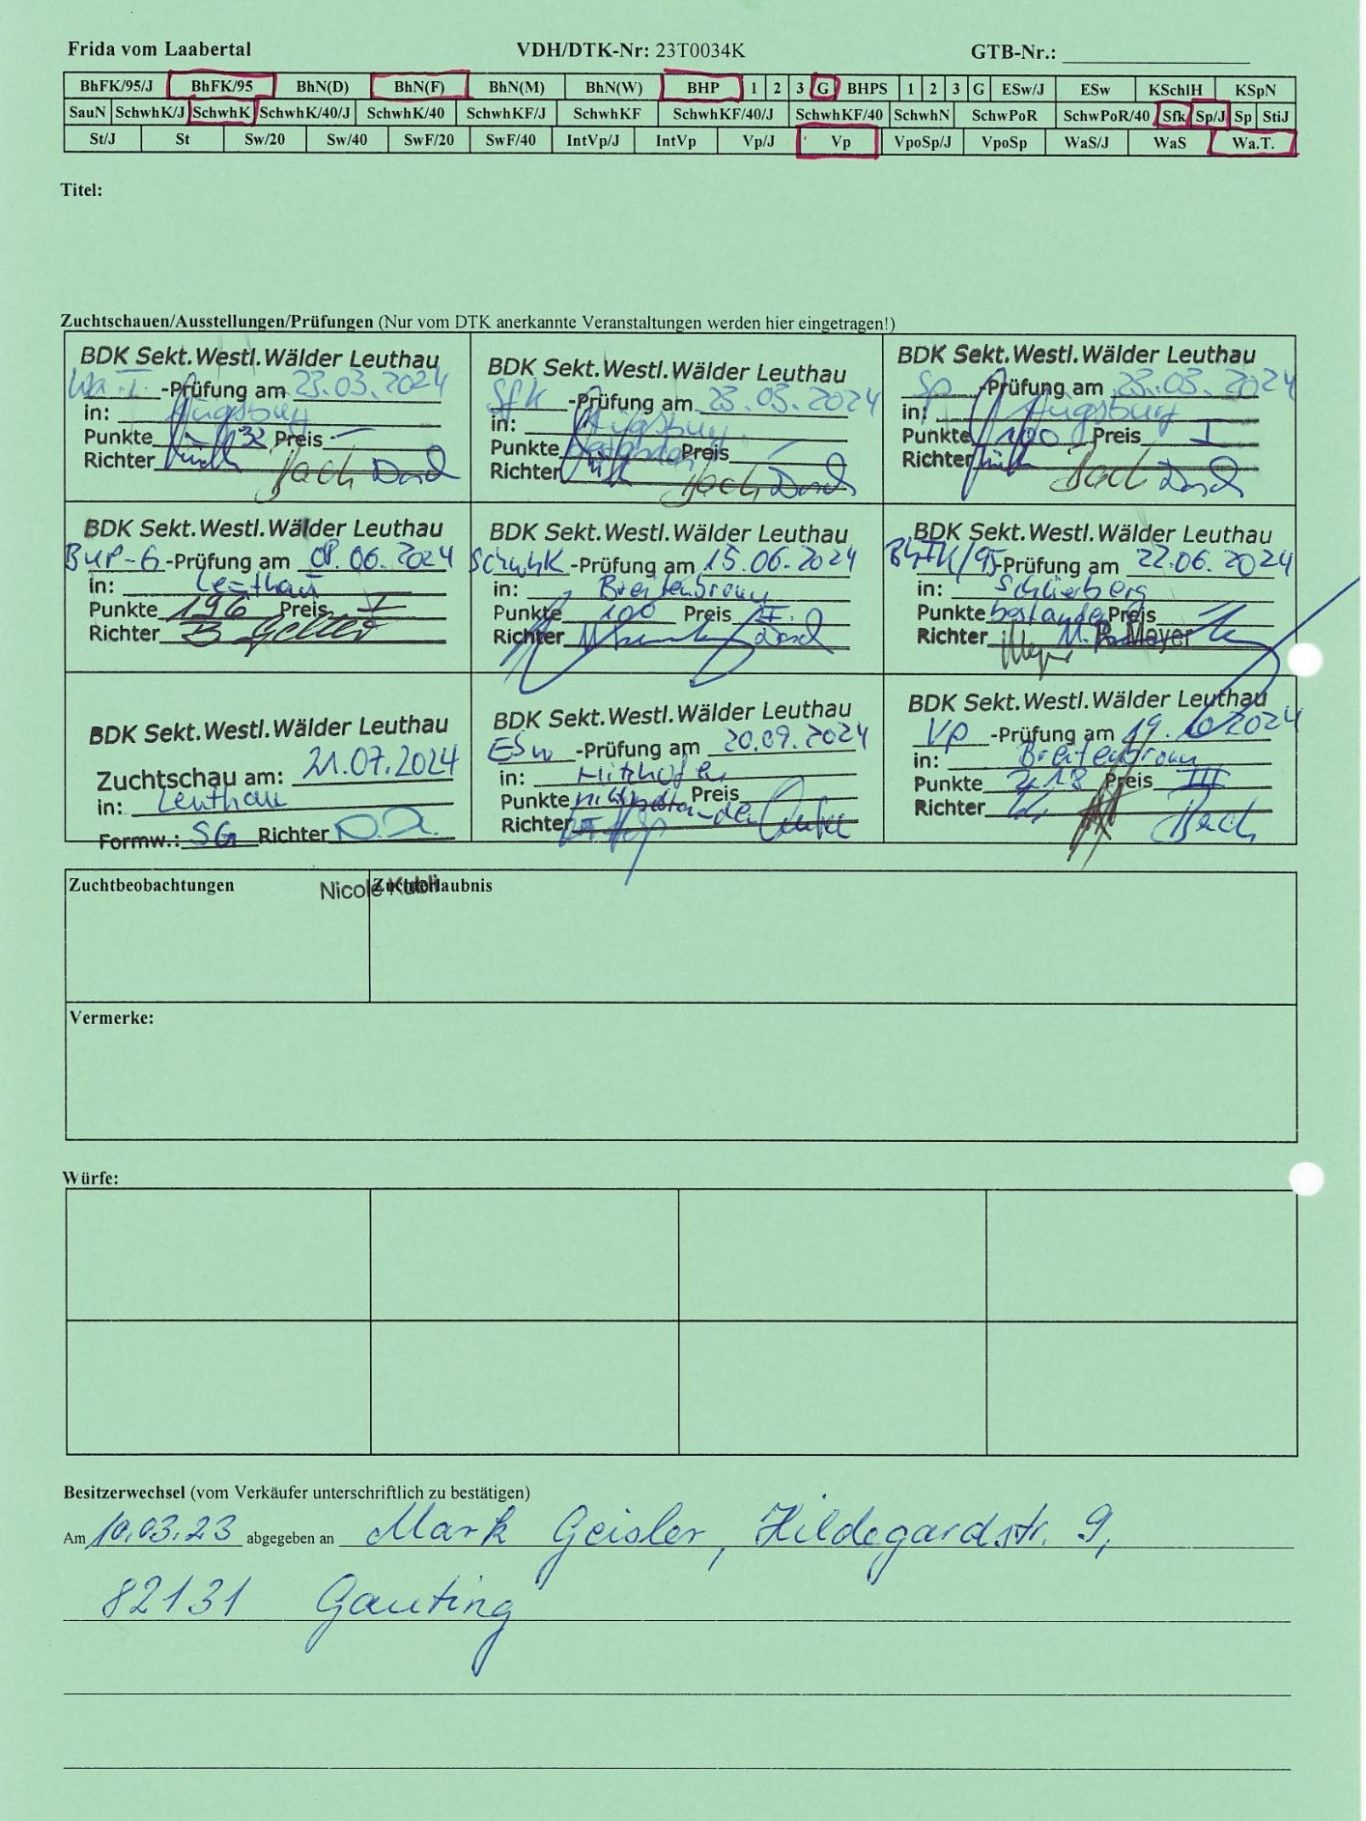 Frida vom Laabertal VDH/DTK-Nr: 23T0034K GTB-Nr.:
BhFK/95/J BhFK/95 BhN(D) BhN(F) BhN(M) BhN(W) BHP 1 2 3 G BHPS 1 2 3 G ESw/J ESw KSchlH KSpN
SauN SchwhK/J SchwhK SchwhK/40/J SchwhK/40 SchwhKF/J SchwhKF SchwhKF/40/J SchwhKF/40 SchwhN SchwPoR SchwPoR/40 Sfk Sp/J Sp StiJ
St/J St Sw/20 Sw/40 SwF/20 SwF/40 IntVp/J IntVp Vp/J Vp VpoSp/J VpoSp WaS/J WaS Wa.T.
Titel:
Zuchtschauen/Ausstellungen/Prüfungen (Nur vom DTK anerkannte Veranstaltungen werden hier eingetragen!)
BDK Sekt. Westl. Wälder Leuthau
Wa.T. -Prüfung am 23.03.2024
in: Augsburg
Punkte 32 Preis —
Richter Bach
BDK Sekt. Westl. Wälder Leuthau
Sfk -Prüfung am 23.03.2024
in: Augsburg
Punkte bestanden Preis —
Richter Bach
BDK Sekt. Westl. Wälder Leuthau
Sp -Prüfung am 23.03.2024
in: Augsburg
Punkte 100 Preis I
Richter Bach
BDK Sekt. Westl. Wälder Leuthau
BHP-G -Prüfung am 08.06.2024
in: Leuthau
Punkte 196 Preis I
Richter
BDK Sekt. Westl. Wälder Leuthau
SchwhK -Prüfung am 15.06.2024
in: Breitenbronn
Punkte 100 Preis I.
Richter
BDK Sekt. Westl. Wälder Leuthau
BhFK/95 -Prüfung am 22.06.2024
in: Schlierberg
Punkte bestanden Preis
Richter Mayer
BDK Sekt. Westl. Wälder Leuthau
Zuchtschau am: 21.07.2024
in: Leuthau
Formw.: SG Richter
BDK Sekt. Westl. Wälder Leuthau
ESw -Prüfung am 20.09.2024
in:
Punkte nicht bestanden Preis
Richter
BDK Sekt. Westl. Wälder Leuthau
Vp -Prüfung am 19.10.2024
in: Breitenbronn
Punkte 218 Preis III
Richter Bach
Zuchtbeobachtungen Nicole Kubli Zuchterlaubnis
Vermerke:
Würfe:
Besitzerwechsel (vom Verkäufer unterschriftlich zu bestätigen)
Am 10.03.23 abgegeben an Mark Geisler, Hildegardstr. 9,
82131 Gauting